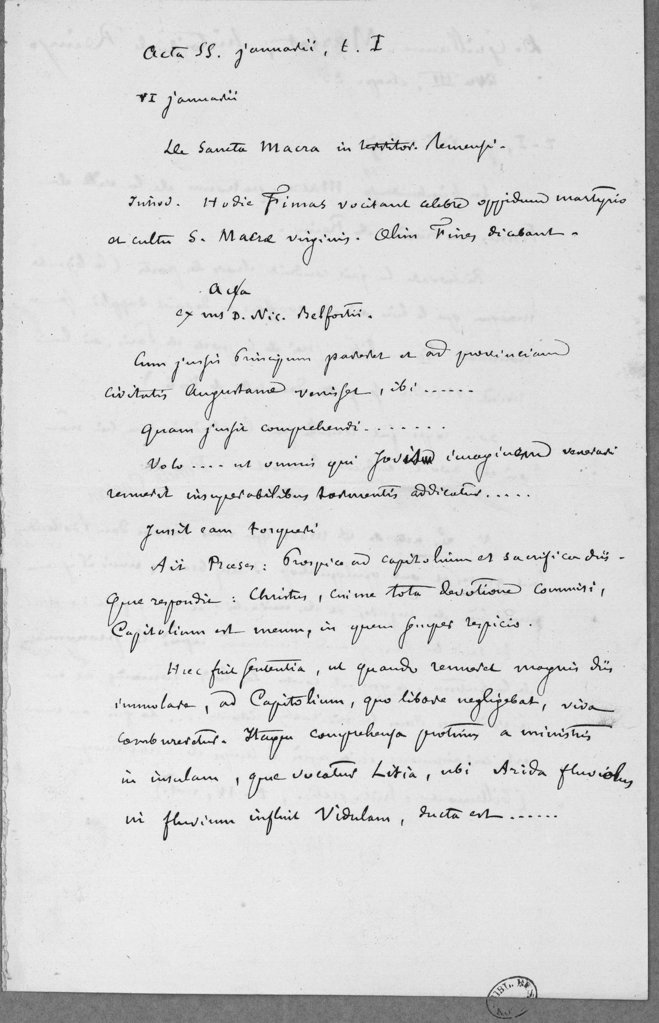 Acta SS. januarii, t. I
VI januarii
De Sancta Macra in territor. Remensi.
Introd. Hodie Fimas vocitant celebre oppidum martyrio
et cultu S. Macræ virginis. Olim Fines dicebant.
Acta
ex ms D. Nic. Belfortii.
Cum jussis Principum pareret et ad provinciam
civitatis Augustanæ venisset, ibi ......
Quam jussit comprehendi .......
Volo .... ut omnis qui Jovis imaginem venerari
renuerit insuperabilibus tormentis addicatur .....
Jussit eam torqueri
Ait Præses: Prospice ad capitolium et sacrifica diis.
Quæ respondit: Christus, cui me tota devotione commisi,
Capitolium est meum, in quem semper respicio.
Hæc fuit sententia, ut quando renueret magnis diis
immolare, ad Capitolium, quo libare negligebat, viva
combureretur. Itaque comprehensa protinus a ministris
in insulam, quæ vocatur Litia, ubi Arida fluviolus
in fluvium influit Vidulam, ducta est ......